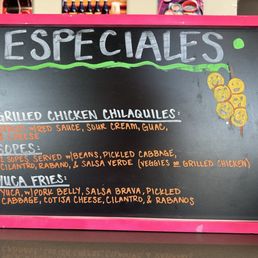 ESPECIALES
GRILLED CHICKEN CHILAQUILES:
W/RED SAUCE, SOUR CREAM, GUAC,
CHEESE
SOPES:
SOPES SERVED W/BEANS, PICKLED CABBAGE,
CILANTRO, RABANO, & SALSA VERDE (VEGGIES OR GRILLED CHICKEN)
YUCA FRIES:
YUCA, W/PORK BELLY, SALSA BRAVA, PICKLED
CABBAGE, COTIJA CHEESE, CILANTRO, & RABANOS